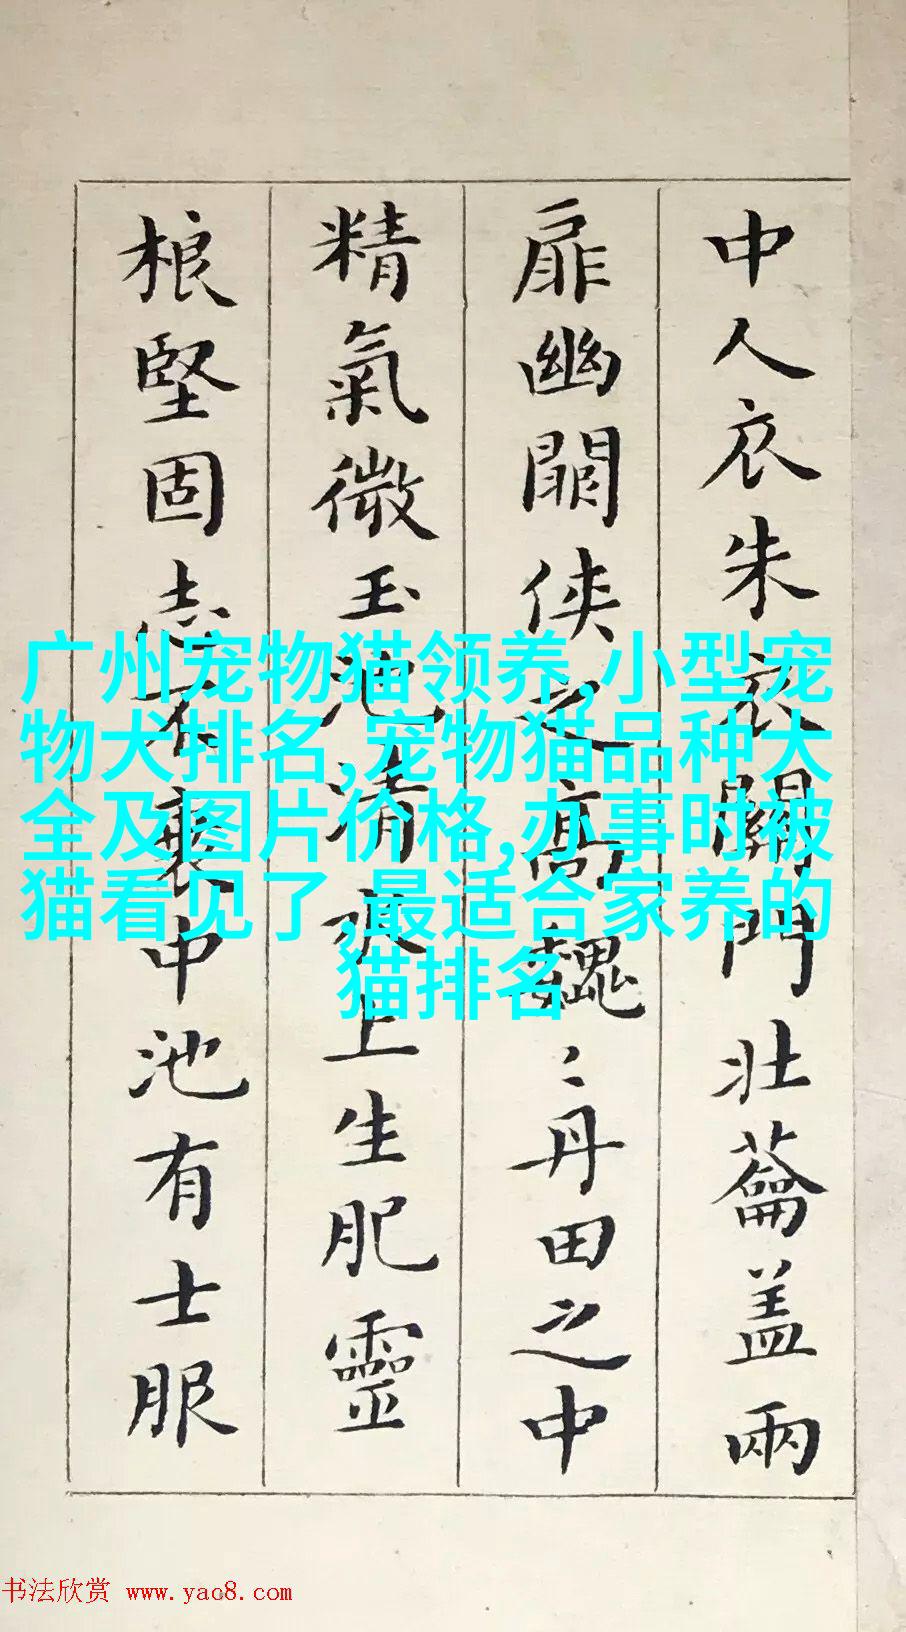 中人衣朱衣關門壯蘥盖兩
扉幽闕侠之高巍〻丹田之中
精氣微玉池清水上生肥靈
根堅固志不衰中池有士服
广州宠物猫领养,小型宠
物犬排名,宠物猫品种大
全及图片价格,办事时被
猫看见了,最适合家养的
猫排名
书法欣赏 www.yac8.com